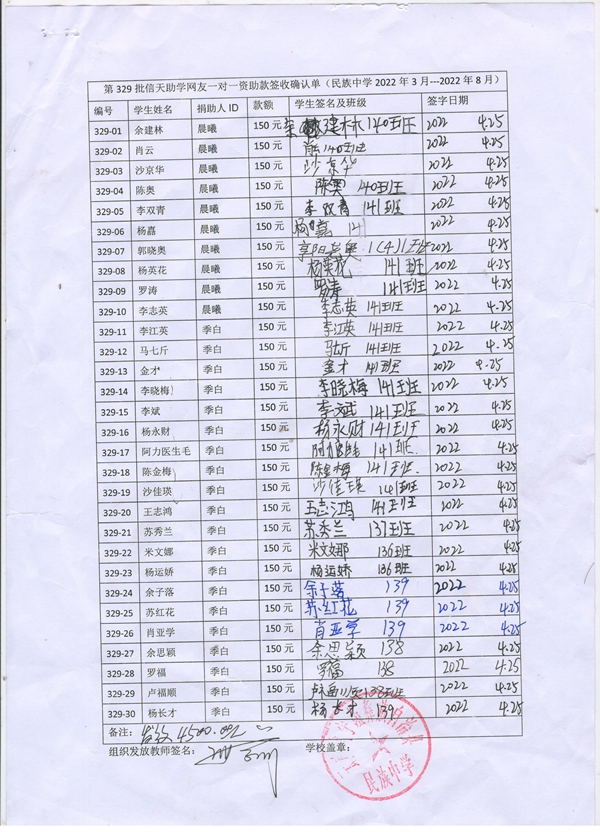 第 329 批信天助学网友一对一资助款签收确认单（民族中学 2022 年 3 月---2022 年 8 月）
编号 学生姓名 捐助人 ID 款额 学生签名及班级 签字日期
329-01 余建林 晨曦 150 元 建林 140班 2022 4.25
329-02 肖云 晨曦 150 元 140班 2022 4.25
329-03 沙京华 晨曦 150 元 沙京华 2022 4.25
329-04 陈奥 晨曦 150 元 陈奥 140班 2022 4.25
329-05 李双青 晨曦 150 元 李双青 141班 2022 4.25
329-06 杨嘉 晨曦 150 元 杨嘉 141 2022 4.25
329-07 郭晓奥 晨曦 150 元 2022 4.25
329-08 杨英花 晨曦 150 元 杨英花 141班 2022 4.25
329-09 罗涛 晨曦 150 元 罗涛 141班 2022 4.25
329-10 李志英 晨曦 150 元 李志英 141班 2022 4.25
329-11 李江英 季白 150 元 李江英 141班 2022 4.25
329-12 马七斤 季白 150 元 141班 2022 4.25
329-13 金才 季白 150 元 金才 141班 2022 4.25
329-14 李晓梅 季白 150 元 李晓梅 141班 2022 4.25
329-15 李斌 季白 150 元 李斌 141班 2022 4.25
329-16 杨永财 季白 150 元 杨永财 141班 2022 4.25
329-17 阿力医生毛 季白 150 元 141班 2022 4.25
329-18 陈金梅 季白 150 元 陈金梅 141班 2022 4.25
329-19 沙佳瑛 季白 150 元 沙佳瑛 141班 2022 4.25
329-20 王志鸿 季白 150 元 王志鸿 141班 2022 4.25
329-21 苏秀兰 季白 150 元 苏秀兰 137班 2022 4.25
329-22 米文娜 季白 150 元 米文娜 136班 2022 4.25
329-23 杨运娇 季白 150 元 杨运娇 136班 2022 4.25
329-24 余子落 季白 150 元 余子落 139 2022 4.25
329-25 苏红花 季白 150 元 苏红花 139 2022 4.25
329-26 肖亚学 季白 150 元 肖亚学 139 2022 4.25
329-27 余思颖 季白 150 元 余思颖 138 2022 4.25
329-28 罗福 季白 150 元 罗福 138 2022 4.25
329-29 卢福顺 季白 150 元 138班 2022 4.25
329-30 杨长才 季白 150 元 杨长才 139 2022 4.25
备注： 4500.00元
组织发放教师签名： 学校盖章：
民族中学